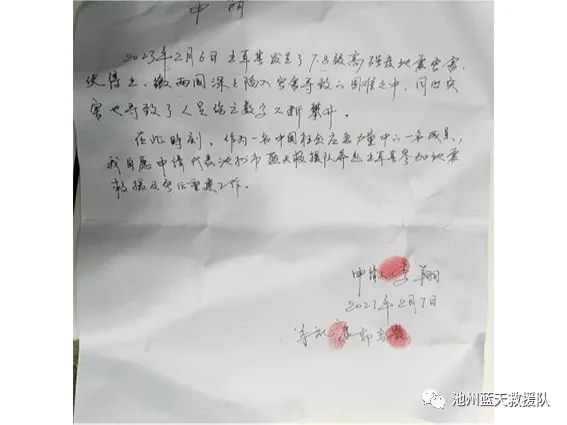 申请
2023年2月6日土耳其发生了7.8级高强度地震灾害,
使得土、叙两国深深陷入灾害导致的困难之中,同时灾
害也导致了人员伤亡数字不断攀升。
在此时刻,作为一名中国社会应急力量中的一名成员,
我自愿申请代表池州市蓝天救援队奔赴土耳其参加地震
救援及灾后重建工作。
申请人:李翔
2023年2月7日
郭
池州蓝天救援队